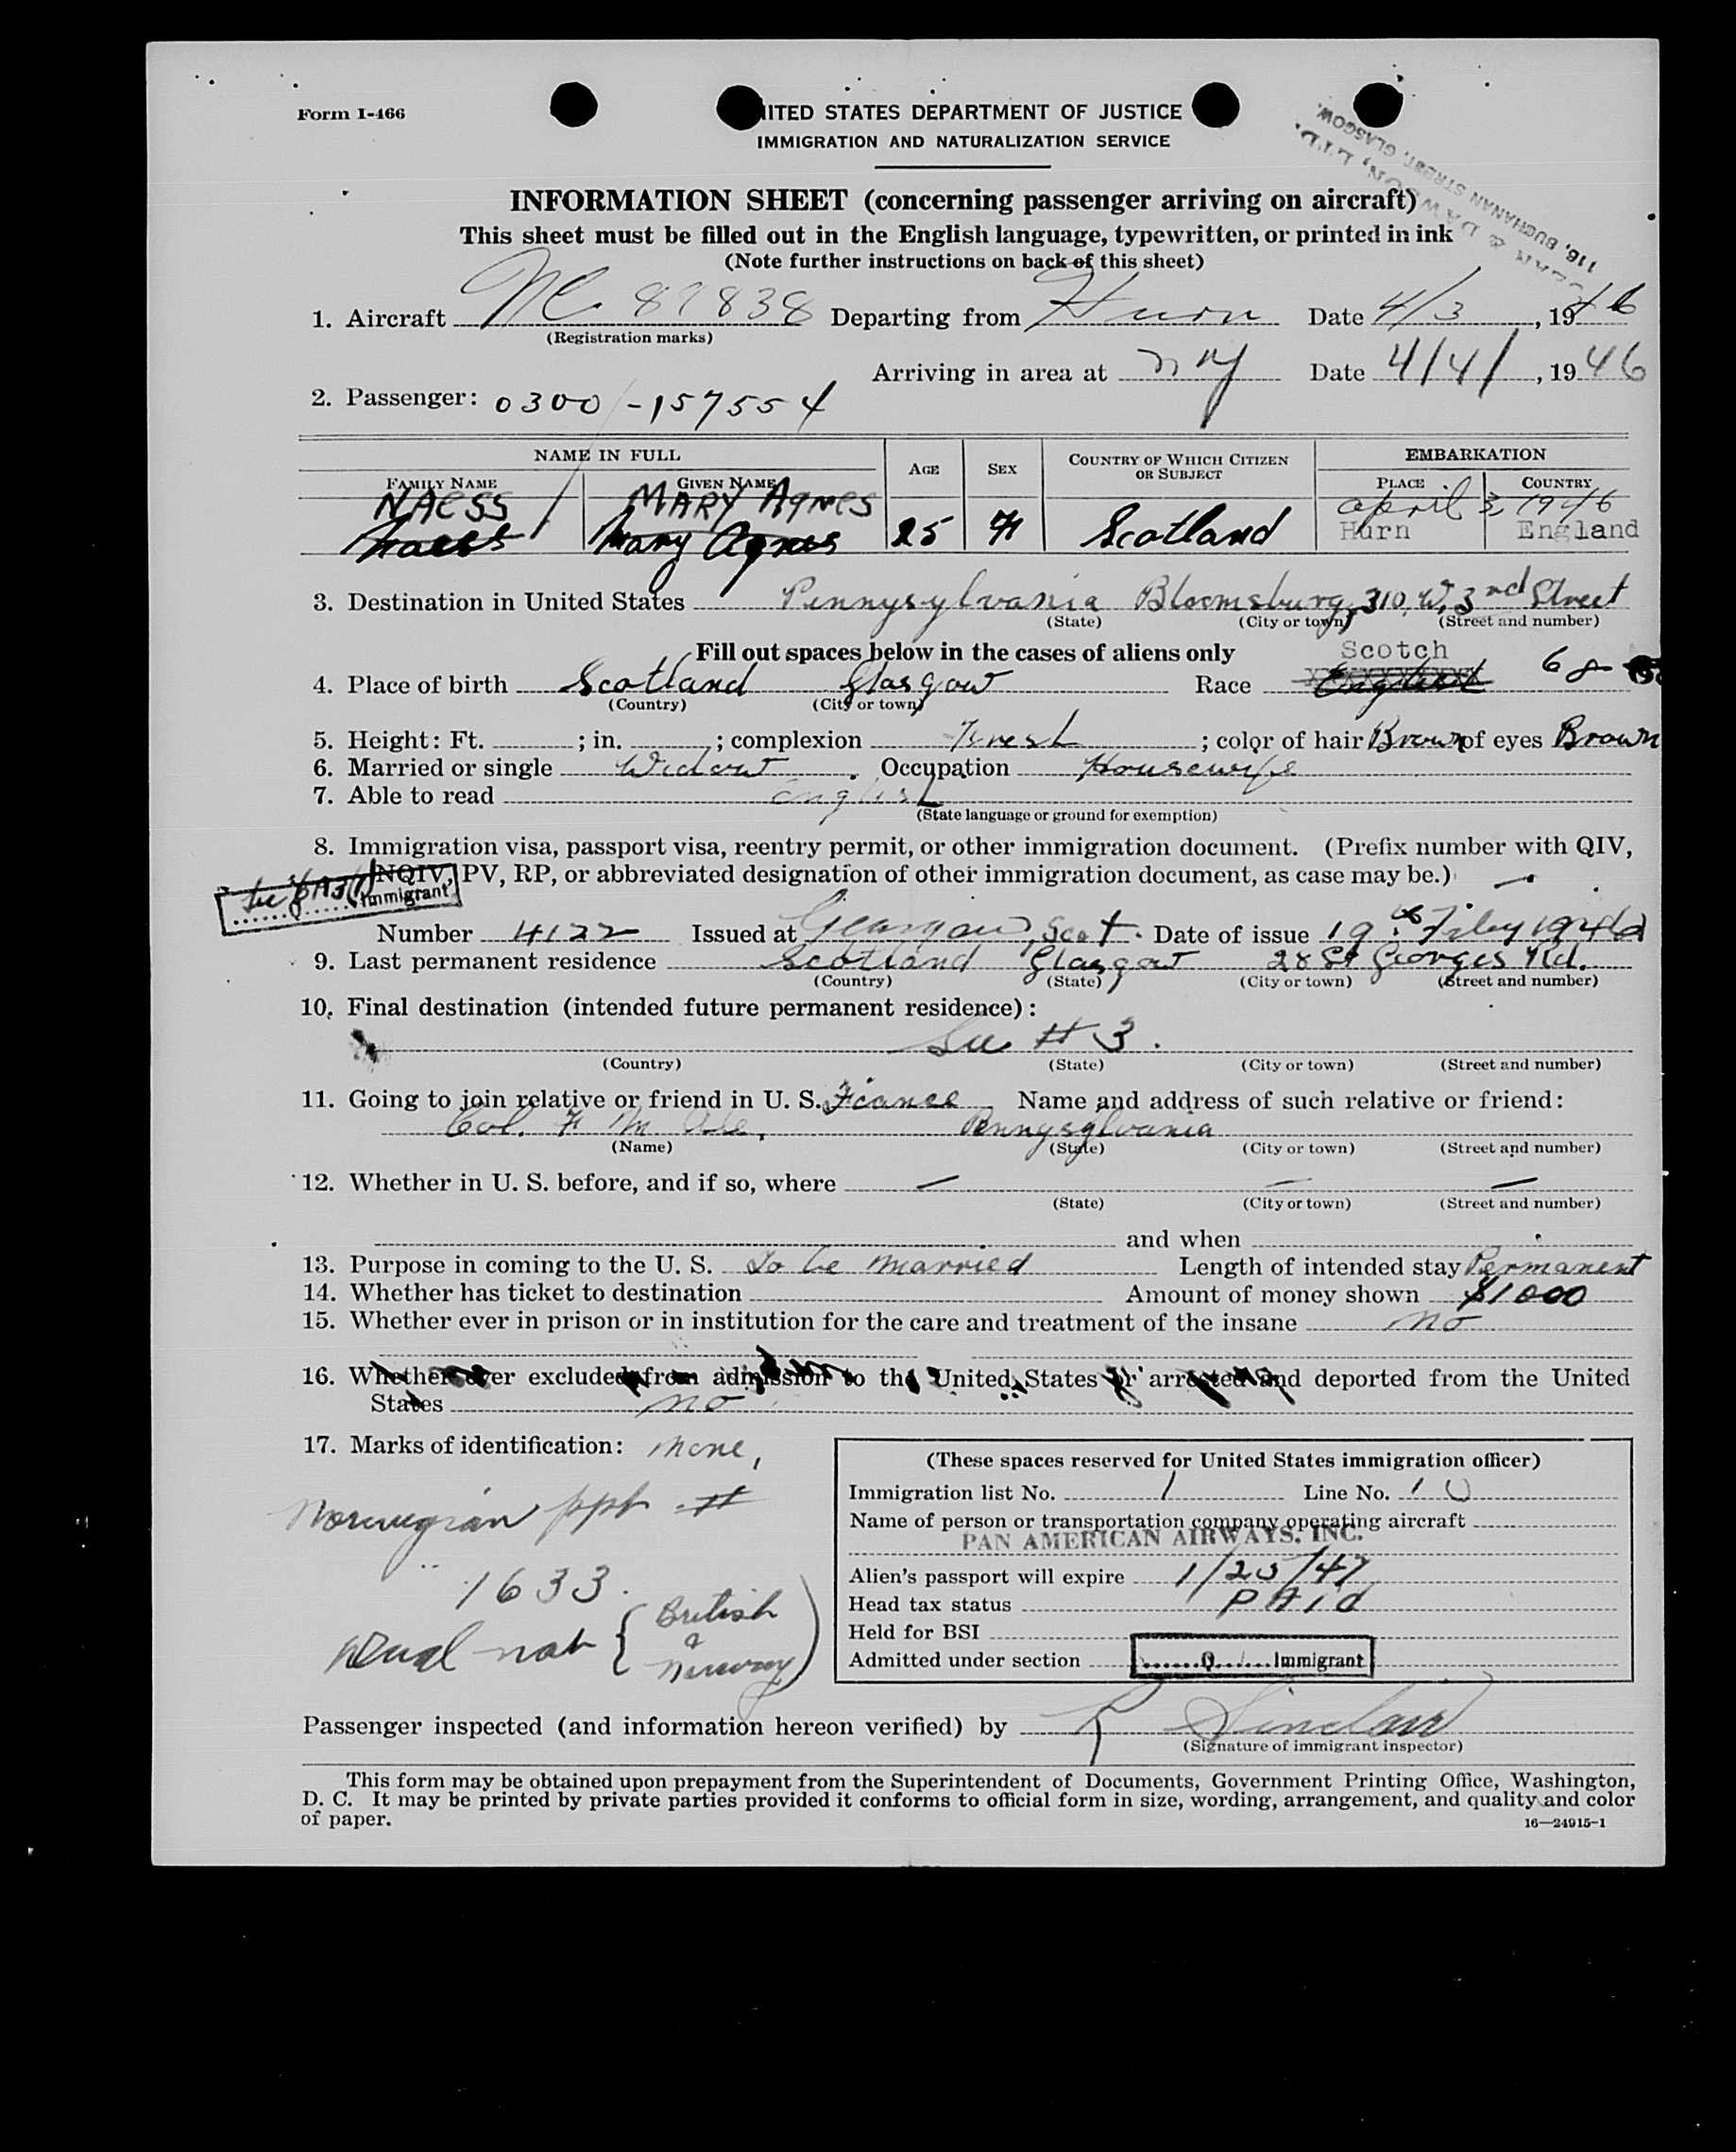 Form I-466
UNITED STATES DEPARTMENT OF JUSTICE
IMMIGRATION AND NATURALIZATION SERVICE
116, BUCHANAN STREET, GLASGOW.
INFORMATION SHEET (concerning passenger arriving on aircraft)
This sheet must be filled out in the English language, typewritten, or printed in ink
(Note further instructions on back of this sheet)
1. Aircraft NC 87838 Departing from Hurn Date 4/3, 1946
(Registration marks)
Arriving in area at NY Date 4/4/, 1946
2. Passenger: 0300-157554
NAME IN FULL AGE SEX COUNTRY OF WHICH CITIZEN OR SUBJECT EMBARKATION
FAMILY NAME GIVEN NAME PLACE COUNTRY
NAESS MARY AGNES April 3, 1946
Naess Mary Agnes 25 F Scotland Hurn England
3. Destination in United States Pennysylvania Bloomsburg, 310, W. 3rd Street
(State) (City or town) (Street and number)
Fill out spaces below in the cases of aliens only Scotch
4. Place of birth Scotland Glasgow Race English 68
(Country) (City or town)
5. Height: Ft. ; in. ; complexion Fresh ; color of hair Brown of eyes Brown
6. Married or single Widow. Occupation Housewife
7. Able to read English
(State language or ground for exemption)
8. Immigration visa, passport visa, reentry permit, or other immigration document. (Prefix number with QIV,
NQIV, PV, RP, or abbreviated designation of other immigration document, as case may be.)
Q Immigrant
Number 4122 Issued at Glasgow, Scot. Date of issue 19th 1946
9. Last permanent residence Scotland Glasgow 28 St Georges Rd.
(Country) (State) (City or town) (Street and number)
10. Final destination (intended future permanent residence):
See # 3.
(Country) (State) (City or town) (Street and number)
11. Going to join relative or friend in U. S. Fiance Name and address of such relative or friend:
Col. F M Pennysylvania
(Name) (State) (City or town) (Street and number)
12. Whether in U. S. before, and if so, where — — —
(State) (City or town) (Street and number)
and when
13. Purpose in coming to the U. S. To be married Length of intended stay Permanent
14. Whether has ticket to destination Amount of money shown $1000
15. Whether ever in prison or in institution for the care and treatment of the insane no
16. Whether ever excluded from admission to the United States or arrested and deported from the United
States no
17. Marks of identification: None,
Norwegian ppt #
1633.
Dual nat { British & Norway )
(These spaces reserved for United States immigration officer)
Immigration list No. 1 Line No. 10
Name of person or transportation company operating aircraft
PAN AMERICAN AIRWAYS, INC.
Alien's passport will expire 1/25/47
Head tax status PAid
Held for BSI
Admitted under section Q Immigrant
Passenger inspected (and information hereon verified) by R Sinclair
(Signature of immigrant inspector)
This form may be obtained upon prepayment from the Superintendent of Documents, Government Printing Office, Washington,
D. C. It may be printed by private parties provided it conforms to official form in size, wording, arrangement, and quality and color
of paper.
16—24915-1